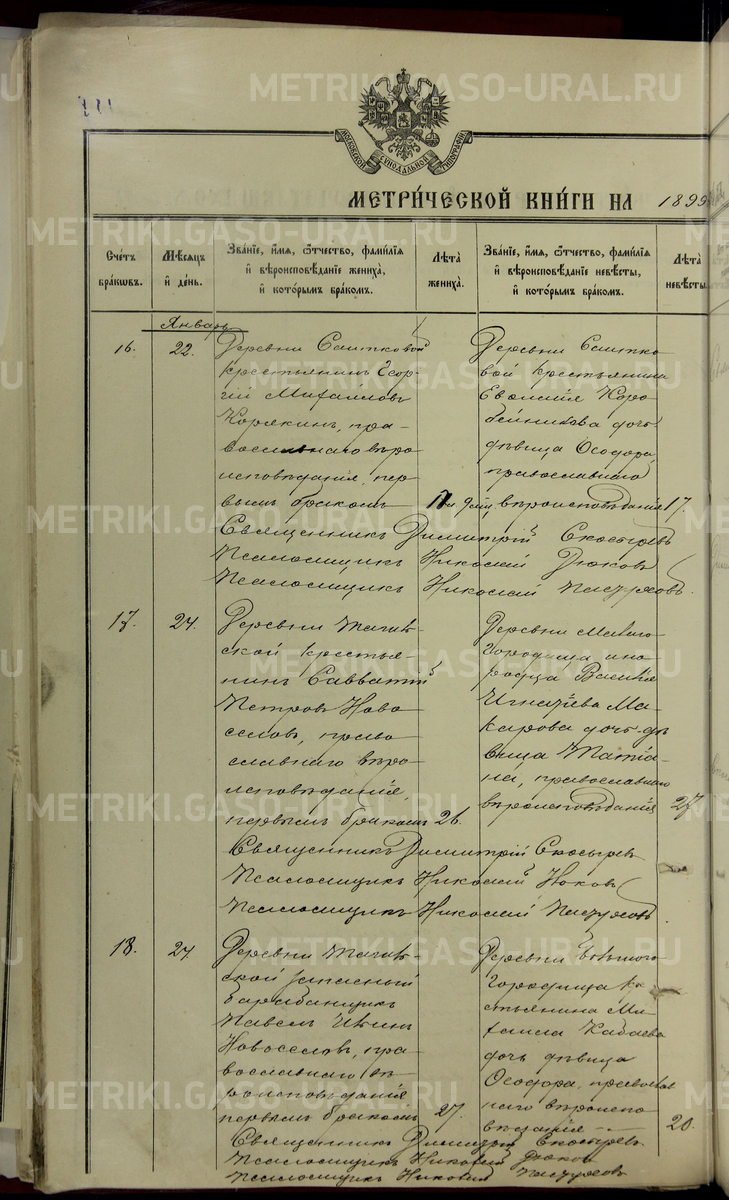 METRIKI.GASO-URAL.RU
111
МОСКОВСКОЙ СУНОДАЛЬНОЙ ТИПОГРАФІИ
МЕТРИ́ЧЕСКОЙ КНИ́ГИ НА 1899
Сче́тъ бра́кѡвъ.
Мѣ́сяцъ и҆ де́нь.
Зва́нїе, и҆́мя, ѻ҆́тчество, фами́лїя и҆ вѣроисповѣ́данїе жениха̀, и҆ кото́рымъ бра́комъ.
Лѣ́та жениха̀.
Зва́нїе, и҆́мя, ѻ҆́тчество, фами́лїя и҆ вѣроисповѣ́данїе невѣ́сты, и҆ кото́рымъ бра́комъ.
Лѣ́та невѣ́сты.
Январь
16.
22.
Деревни Саитковой
крестьянинъ Геор-
гій Михаиловъ
Корякинъ, пра-
вославнаго вѣро
исповѣданія, пер
вымъ бракомъ
Деревни Саитко
вой крестьянина
Евѳимія Коро
бейникова дочь
дѣвица Ѳеодора,
православнаго
вѣроисповѣданія
17.
Священникъ Димитрій Скосыревъ
Псаломщикъ Николай Дюковъ
Псаломщикъ Николай Пастуховъ
17.
24.
Деревни Тагиль-
ской крестья-
нинъ Савватій
Петровъ Ново
селовъ, право
славнаго вѣро
исповѣданія,
первымъ бракомъ
26.
Деревни Малаго
Городища ино-
родца Василія
Игнатіева Ма
карова дочь дѣ
вица Татіа-
на, православнаго
вѣроисповѣданія
27
Священникъ Димитрій Скосыревъ
Псаломщикъ Николай Дюковъ
Псаломщикъ Николай Пастуховъ
18.
24
Деревни Тагиль-
ской запасный
барабанщикъ
Павелъ
Новоселовъ, пра-
вославнаго вѣ
роисповѣданія
первымъ бракомъ
27.
Деревни Большого
Городища кре
стьянина Ми
хаила Кабаева
дочь дѣвица
Ѳеодора, православ
наго вѣроиспо
вѣданія
20.
Священникъ Димитрій Скосыревъ
Псаломщикъ Николай Дюковъ
Псаломщикъ Николай Пастуховъ